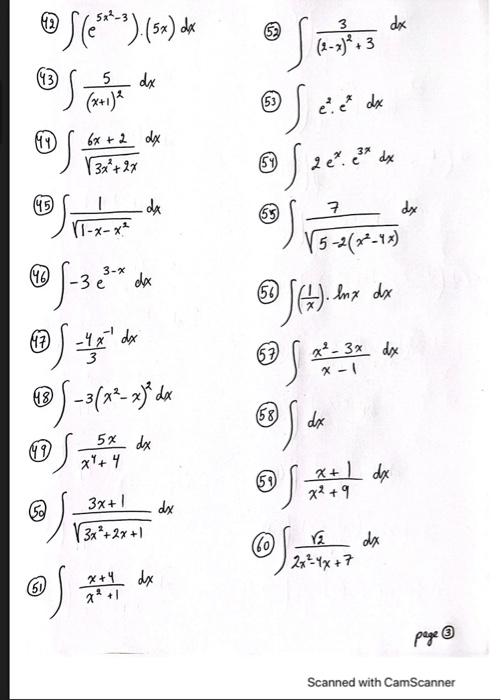 42 ∫(e^(5x²-3)).(5x) dx
43 ∫ 5/(x+1)² dx
44 ∫ (6x+2)/√(3x²+2x) dx
45 ∫ 1/√(1-x-x²) dx
46 ∫ -3 e^(3-x) dx
47 ∫ (-4x⁻¹)/3 dx
48 ∫ -3(x²-x)² dx
49 ∫ 5x/(x⁴+4) dx
50 ∫ (3x+1)/√(3x²+2x+1) dx
51 ∫ (x+4)/(x²+1) dx
52 ∫ 3/((2-x)²+3) dx
53 ∫ e².eˣ dx
54 ∫ 2eˣ.e^(3x) dx
55 ∫ 7/√(5-2(x²-4x)) dx
56 ∫(1/x).lnx dx
57 ∫ (x²-3x)/(x-1) dx
58 ∫ dx
59 ∫ (x+1)/(x²+9) dx
60 ∫ √2/(2x²-4x+7) dx
page 3
Scanned with CamScanner